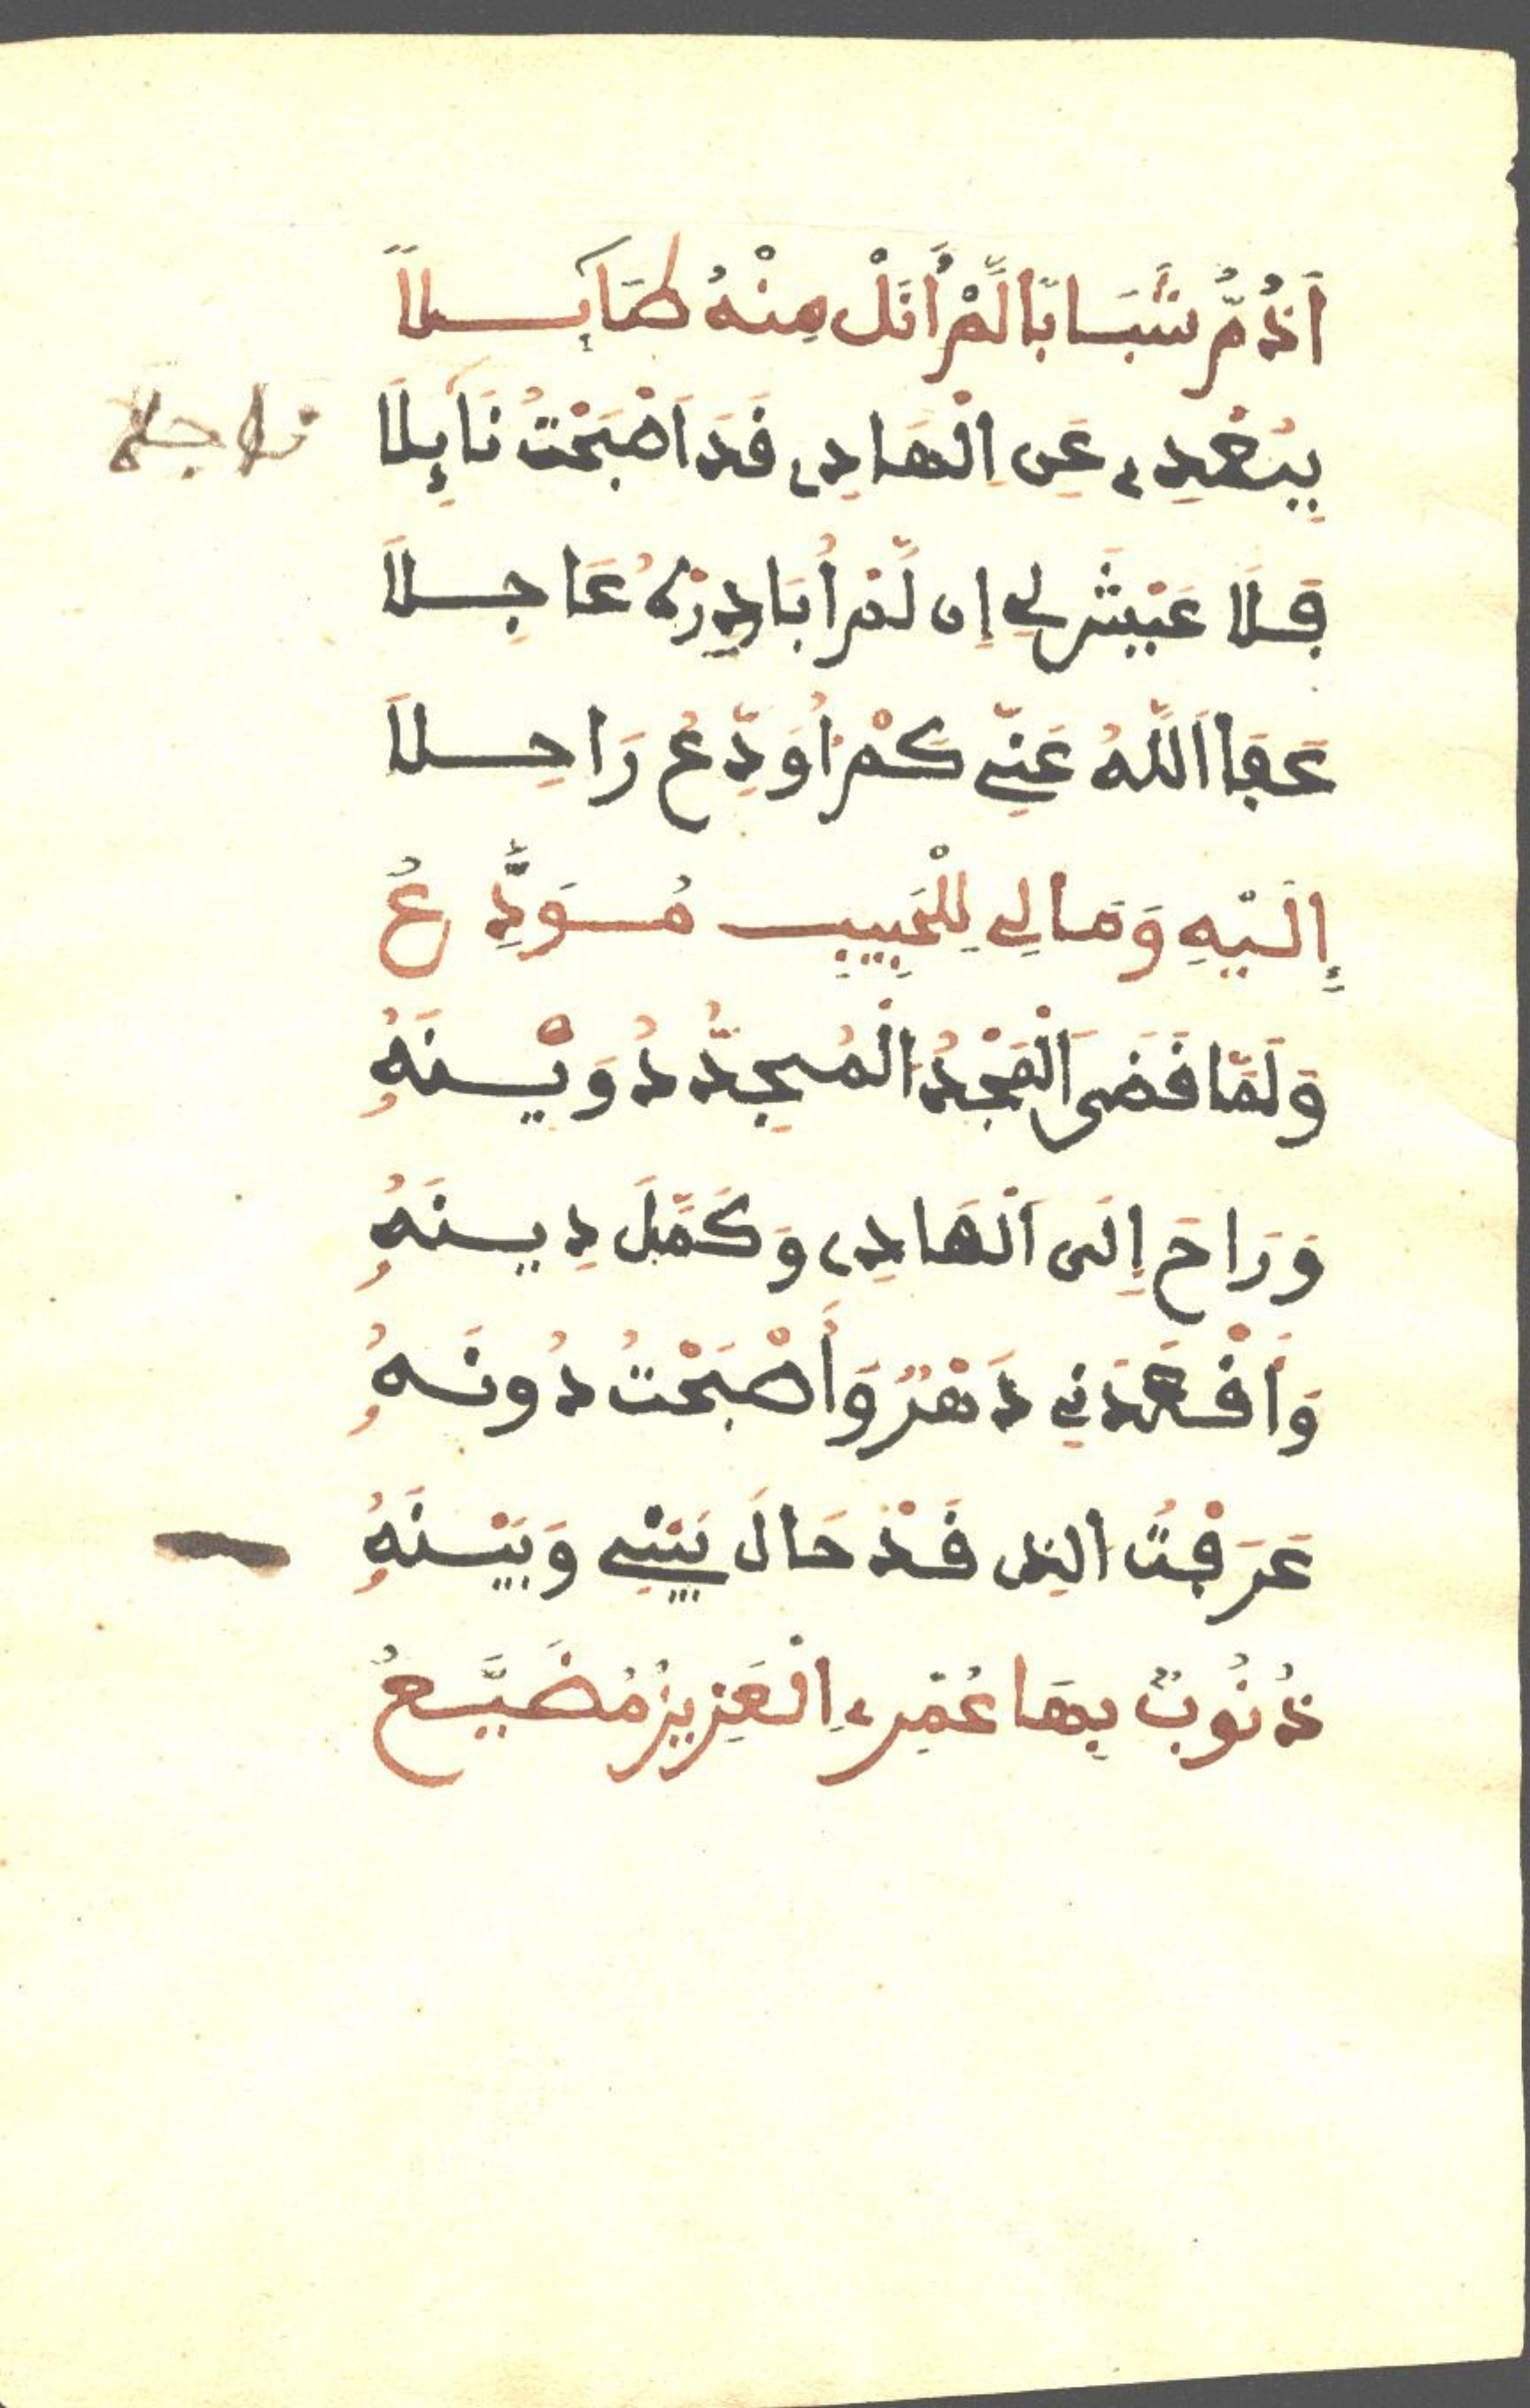 أَذُمُّ شَبَابًا لَّمْ أَنَلْ مِنْهُ طَآئِلًا
بِبُعْدِي عَنِ الْهَادِي فَقَدَ اَصْبَحْتُ نَآئِلًا
فَلَا عَيْشَ لِي إِن لَّمْ أُبَادِرْهُ عَاجِلًا
عَفَا اَللَّهُ عَنِّي كَمْ أُوَدِّعُ رَاحِلًا
إِلَيْهِ وَمَا لِي لِلْحَبِيبِ مُوَدِّعُ
وَلَمَّا قَضَى اَلْمَجْدُ الْمُجِدُّ دُوَيْنَهُ
وَرَاحَ إِلَى اَلْهَادِي وَكَمَّلَ دِينَهُ
وَأَقْعَدَنِي دَهْرٌ وَأَصْبَحْتُ دُونَهُ
عَرَفْتُ الذِي قَدْ حَالَ بَيْنِي وَبَيْنَهُ
ذُنُوبٌ بِهَا عُمْرِي اِلْعَزِيزُ مُضَيَّعُ